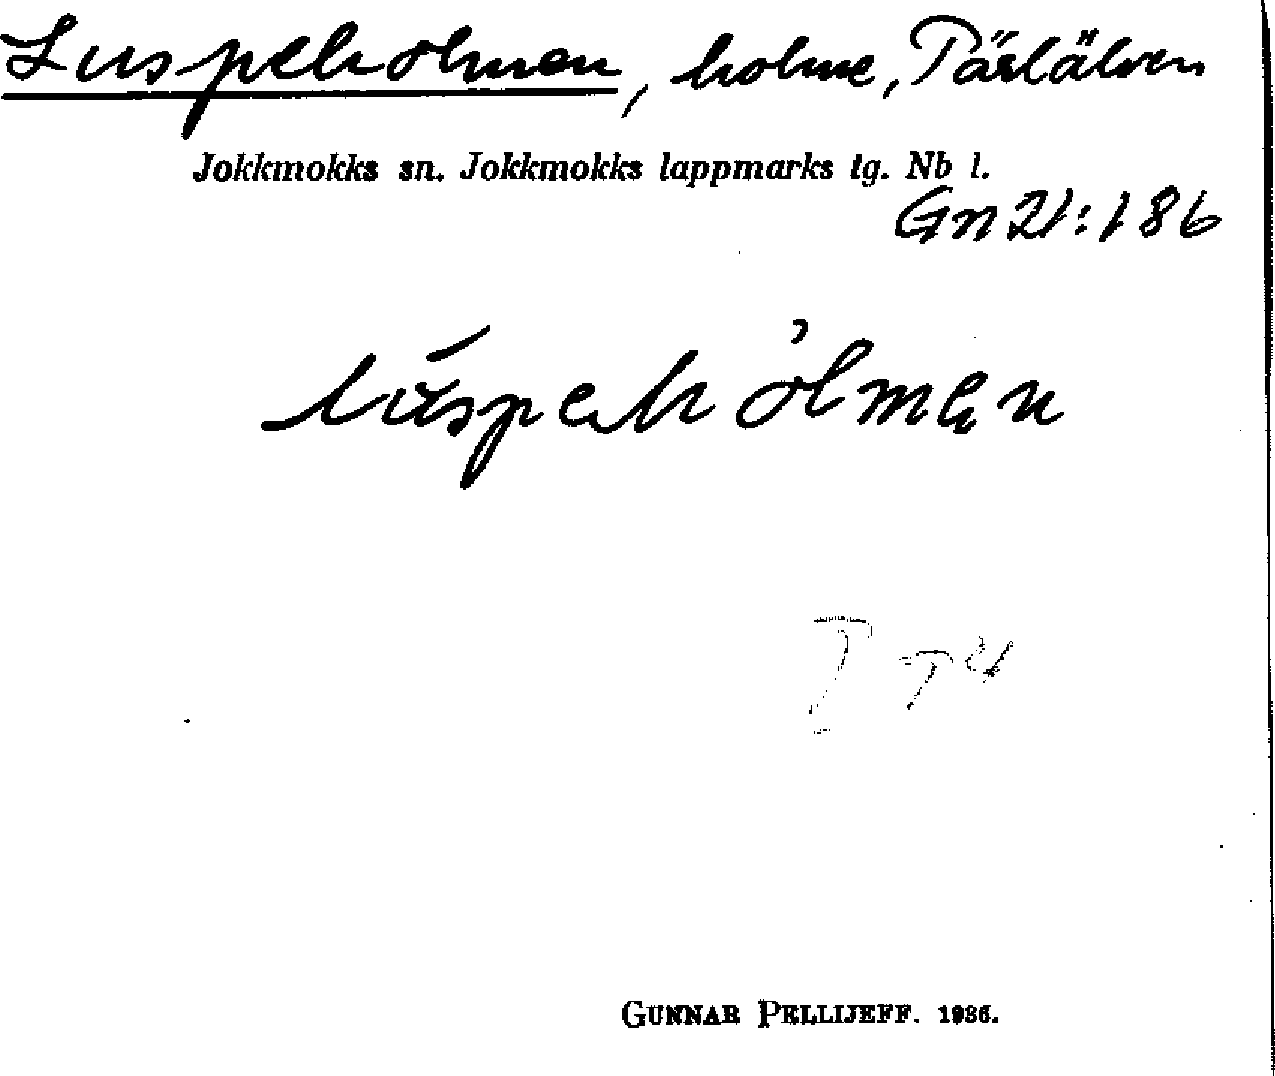 Luspeholmen, holme, Pärlälven
Jokkmokks sn. Jokkmokks lappmarks tg. Nb l.
Gn 21:186
lúspehòlmen
GUNNAR PELLIJEFF. 1936.